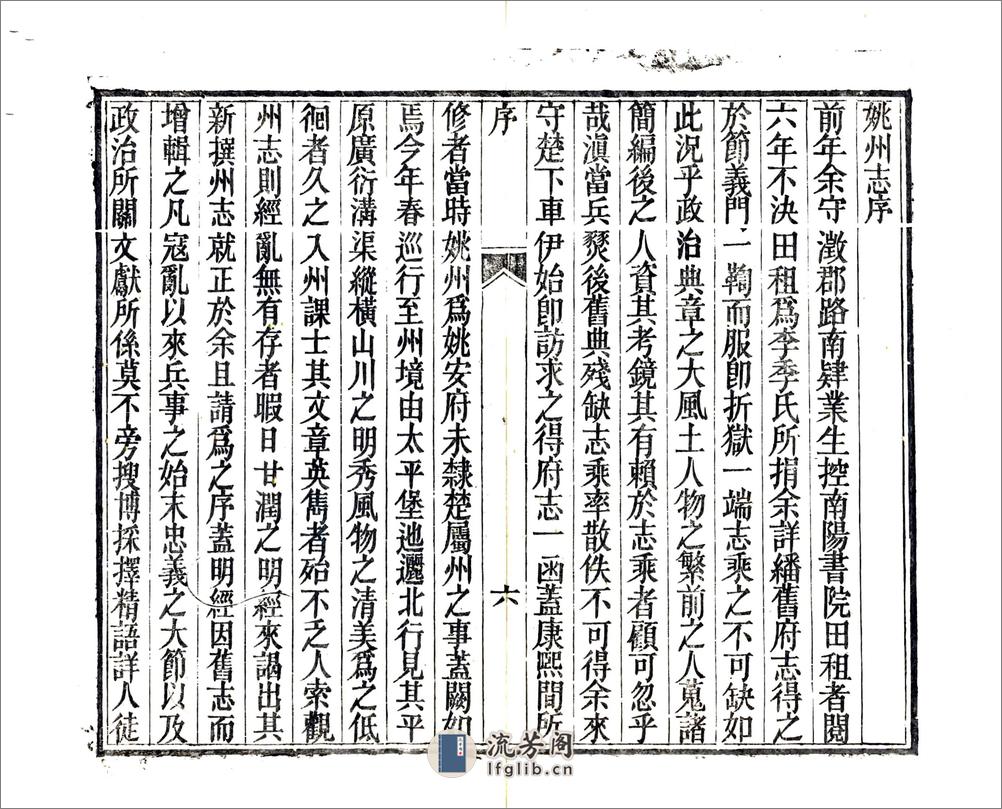 姚州志序
前年余守澂郡路南肄業生控南陽書院田租者閱
六年不決田租爲李季氏所捐余詳繙舊府志得之
於節義門一鞫而服卽折獄一端志乘之不可缺如
此況乎政治典章之大風土人物之繁前之人蒐諸
簡編後之人資其考鏡其有賴於志乘者顧可忽乎
哉滇當兵燹後舊典殘缺志乘率散佚不可得余來
守楚下車伊始卽訪求之得府志一函蓋康熙間所
序
六
修者當時姚州爲姚安府未隸楚屬州之事蓋闕如
焉今年春巡行至州境由太平堡迤邐北行見其平
原廣衍溝渠縱橫山川之明秀風物之清美爲之低
徊者久之入州課士其文章英雋者殆不乏人索觀
州志則經亂無有存者暇日甘潤之明經來謁出其
新撰州志就正於余且請爲之序蓋明經因舊志而
增輯之凡寇亂以來兵事之始末忠義之大節以及
政治所關文獻所係莫不旁搜博採擇精語詳人徒
流芳阁
lfglib.cn